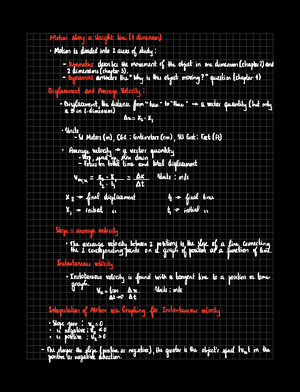 Motion along a straight line (1 dimension)
• Motion is divided into 2 areas of study:
- Kinematics describes the movement of the object in one dimension (chapter 2) and
2 dimensions (chapter 3).
- Dynamics answers the "Why is this object moving?" question (chapter 4)
Displacement and Average Velocity:
• Displacement, the distance from "here" to "there" → a vector quantity (but only
in 1-dimension)
Δx = x₂ - x₁
• Units
- SI Meters (m), CGS: Centimeters (cm), US Cust: Feet (ft)
• Average velocity → a vector quantity
- up down
- total time and total displacement
= x₂ - x₁ = Δx Units: m/s
t₂ - t₁ Δt
x₂ → final displacement t₂ → final time
x₁ → initial " t₁ → initial "
Slope = average velocity
• The average velocity between 2 positions is the slope of a line connecting
the 2 corresponding points on a graph of position as a function of time.
Instantaneous velocity
• Instantaneous velocity is found with a tangent line to a position vs time
graph.
= lim Δx Units: m/s
Δt→0 Δt
Interpretation of Motion via Graphing for Instantaneous velocity
• Slope zero : vₓ = 0
• " negative: vₓ < 0
• " positive : vₓ > 0
- The steeper the slope (positive or negative), the greater is the object's speed in the
positive or negative direction.